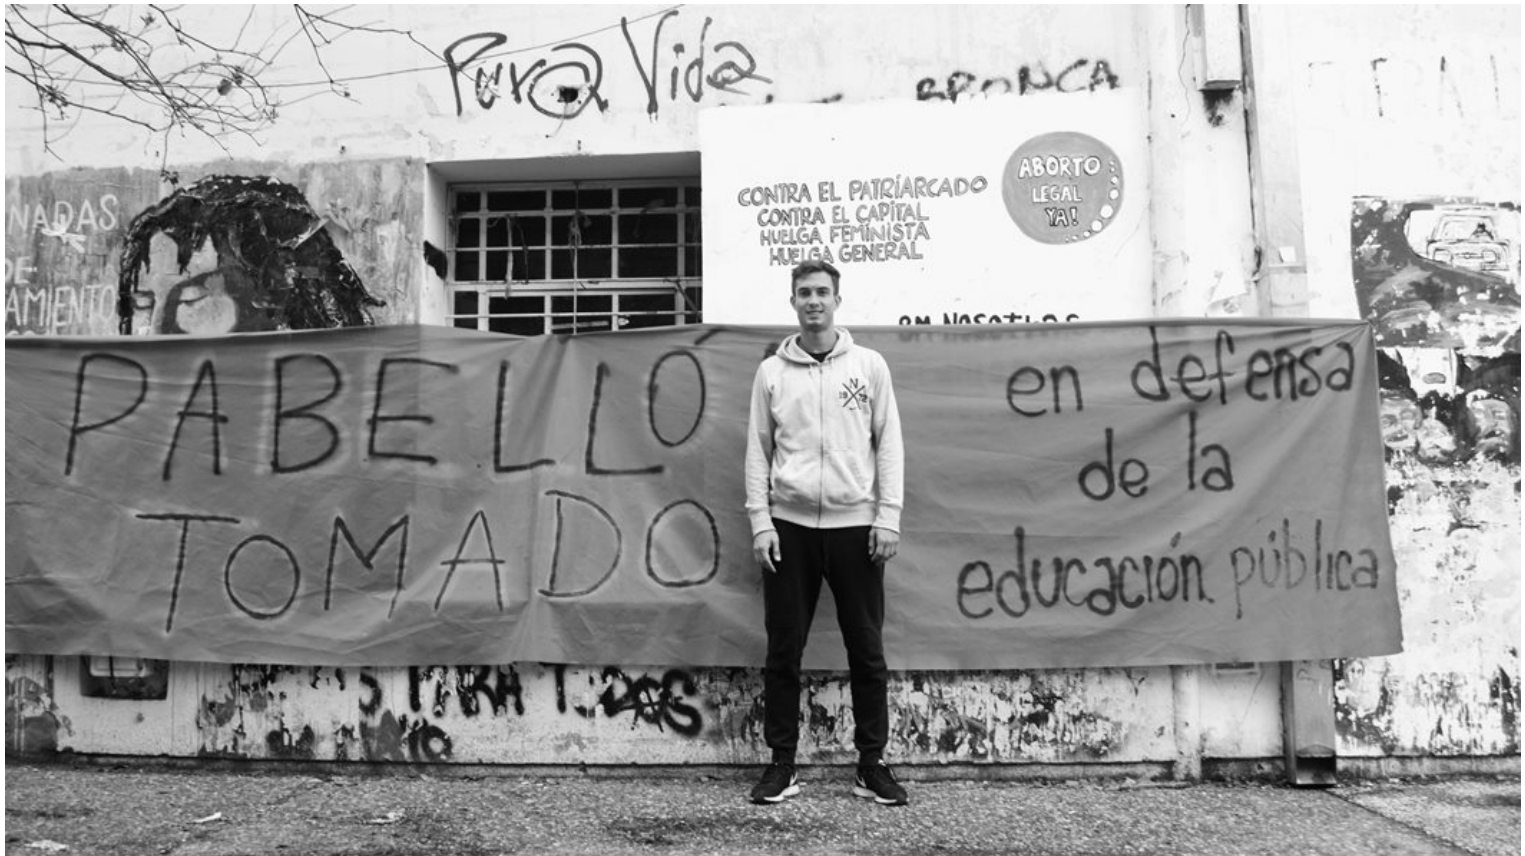 Pura Vida
BRONCA
NADAS
DE
AMIENTO
CONTRA EL PATRIARCADO
CONTRA EL CAPITAL
HUELGA FEMINISTA
HUELGA GENERAL
ABORTO
LEGAL
YA!
8M NOSOTLAS
PABELLÓ
TOMADO
N
19 72
en defensa
de la
educación pública
PARA TODOS